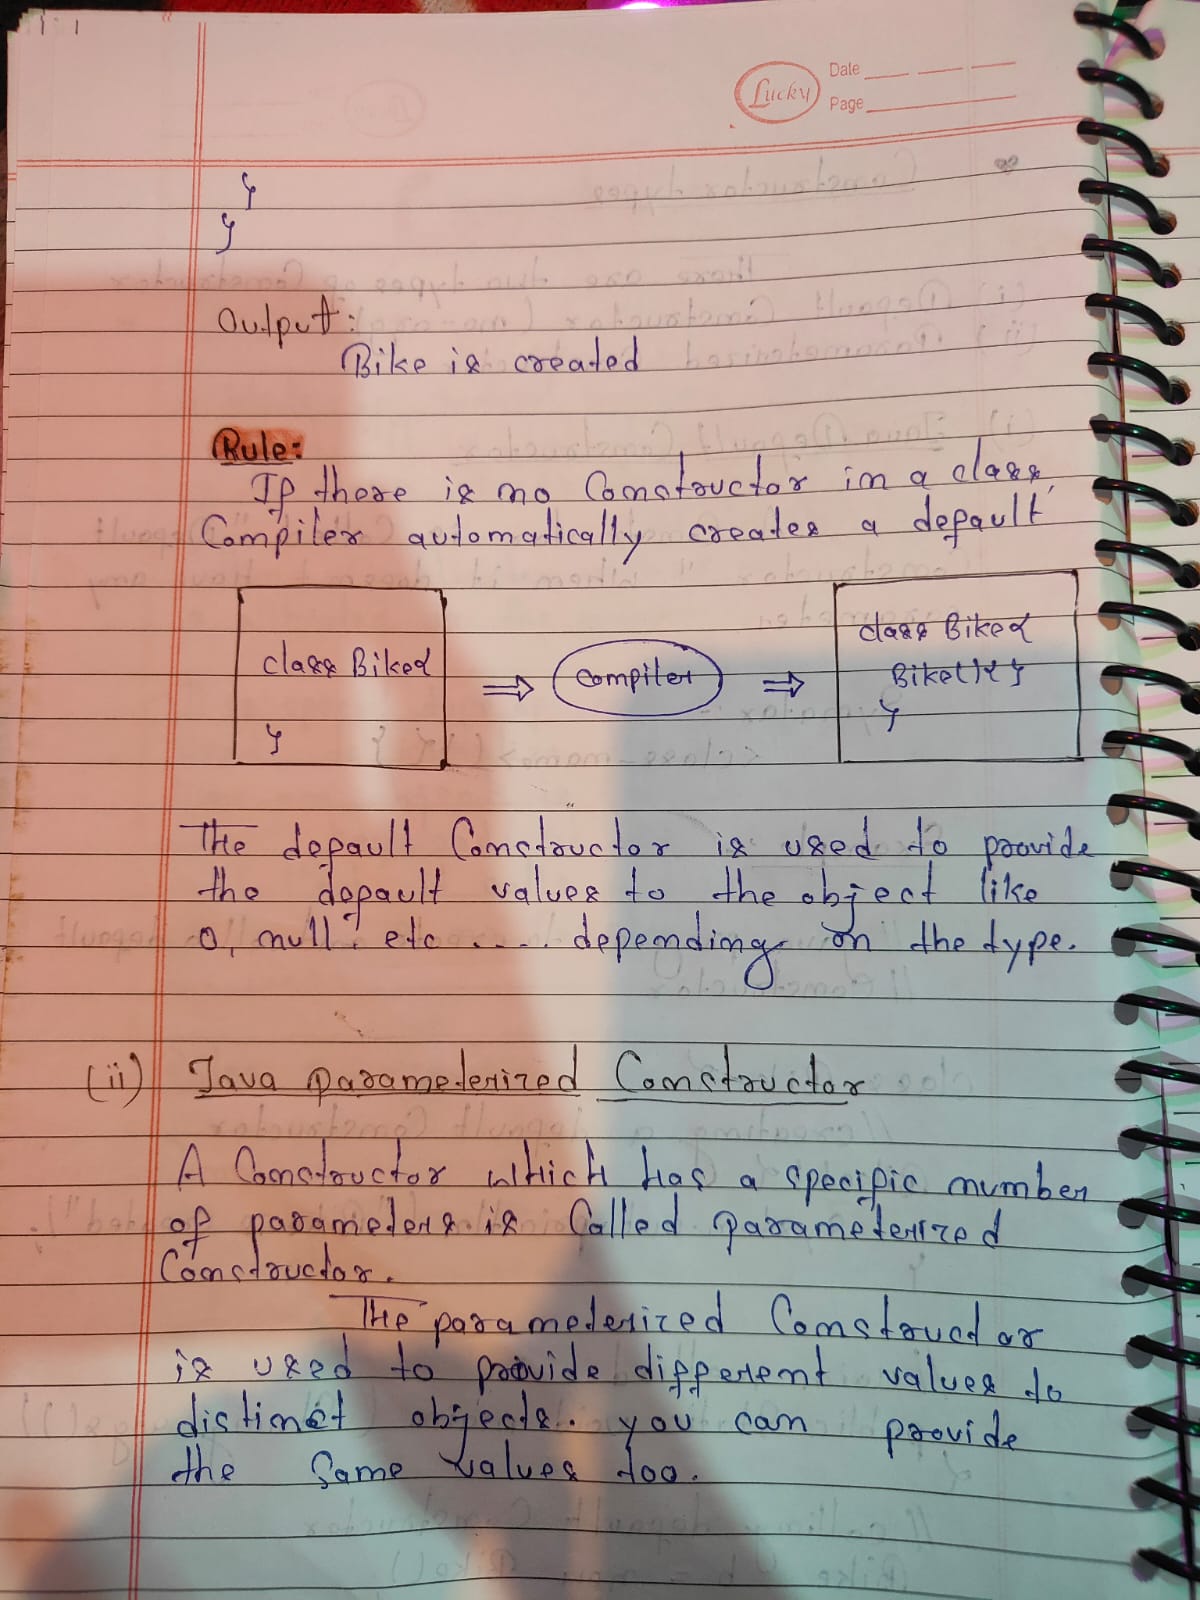 Lucky
Date
Page
}
}
Output:
Bike is created
Rule:
If there is no Constructor in a class,
Compiler automatically creates a default
class Bike{
}
⇒
Compiler
⇒
class Bike{
Bike(){}
}
The default Constructor is used to provide
the default values to the object like
0, null, etc .... depending on the type.
(ii) Java parameterized Constructor
A Constructor which has a specific number
of parameters is Called parameterized
Constructor.
The parameterized Constructor
is used to provide different values to
distinct objects. you can provide
the Same values too.